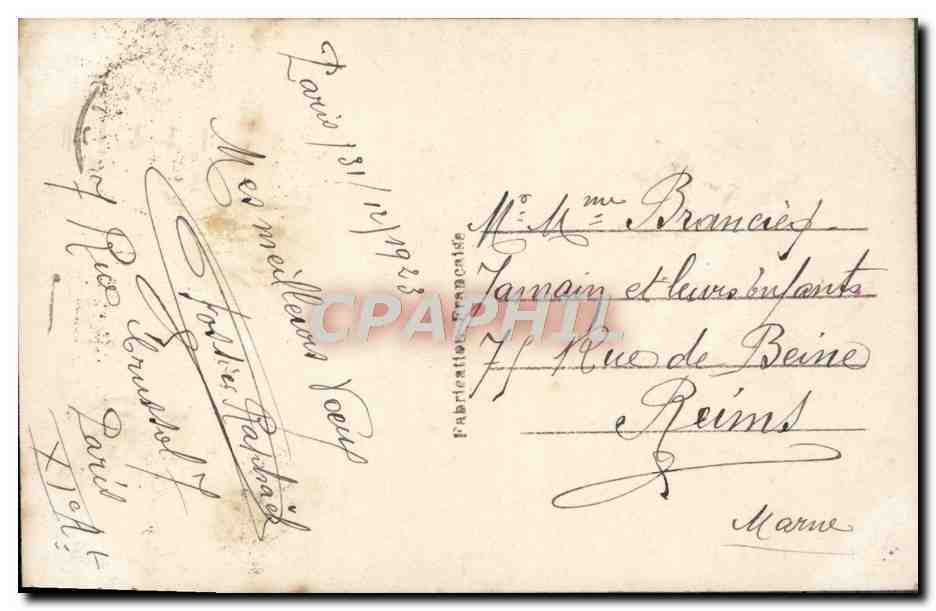 Paris, 31/12/1923
Mes meilleurs Voeux
Fossiès Raphaël
7 Rue Crussol 7
Paris
XIe Ar t
Fabrication Française
Mr. Mme Branciex
Jamain et leurs enfants
75 Rue de Beine
Reims
Marne
CPAPHIL